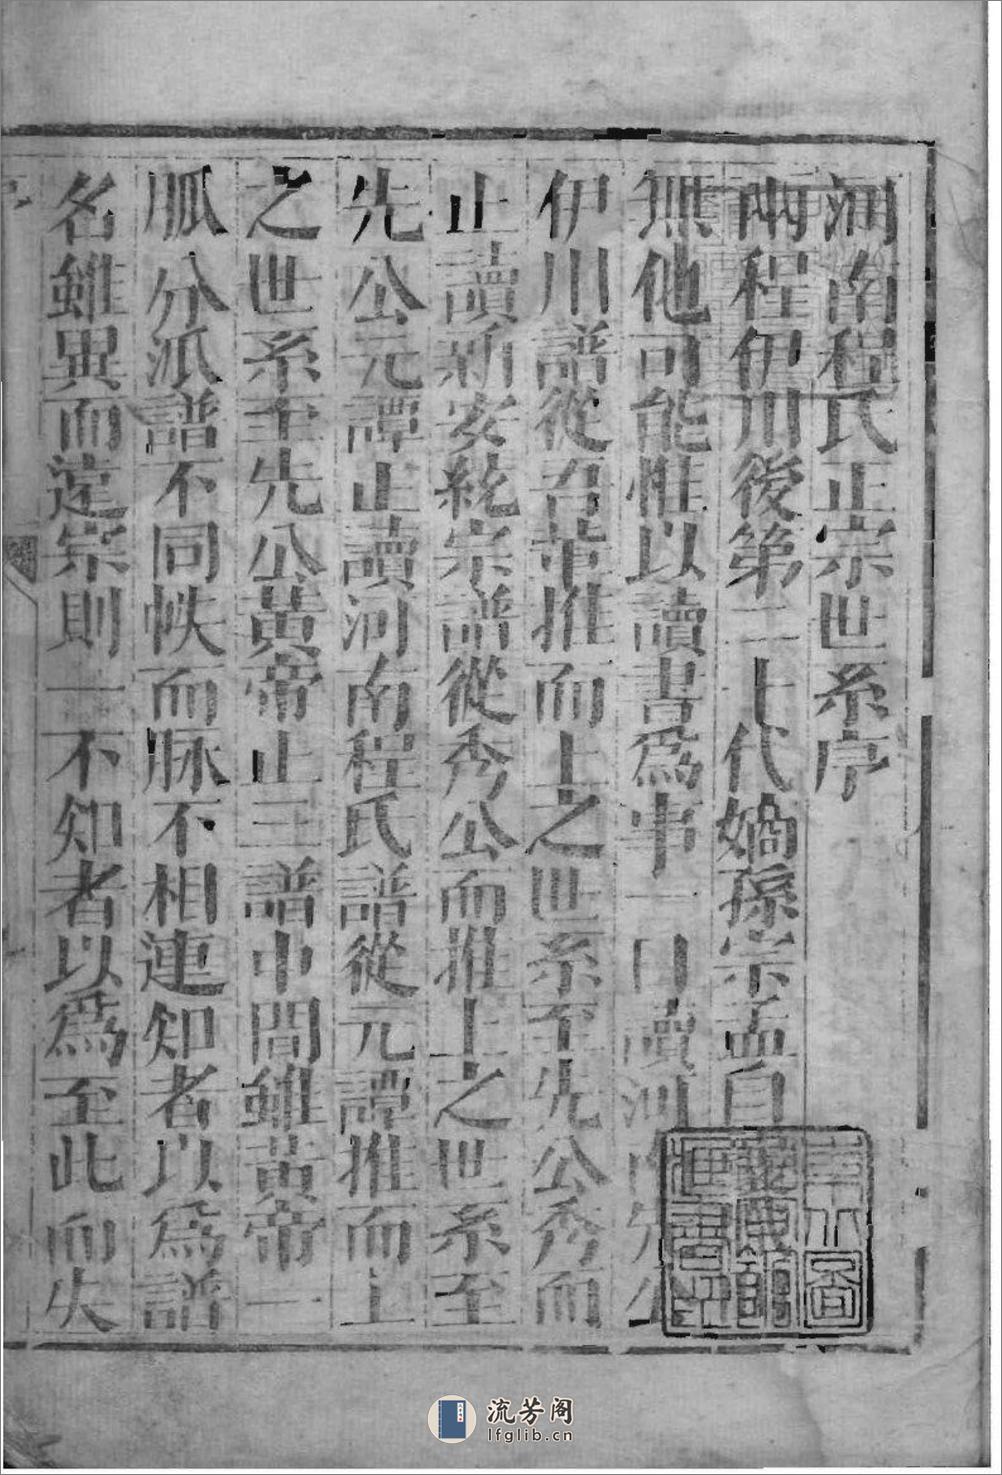 河南程氏正宗世系序
兩程伊川後第二十代嫡孫宗孟自
無他可能惟以讀書為事一日讀河南先公
伊川譜從召華推而上之世系至先公秀而
止讀新安統宗譜從秀公而推上之世系至
先公元譚止讀河南程氏譜從元譚推而上
之世系至先公黃帝止三譜中間雖黃帝一
脈分派譜不同帙而脉不相連知者以為譜
名雖異而定宗則一不知者以為至此而失
流芳阁
lfglib.cn